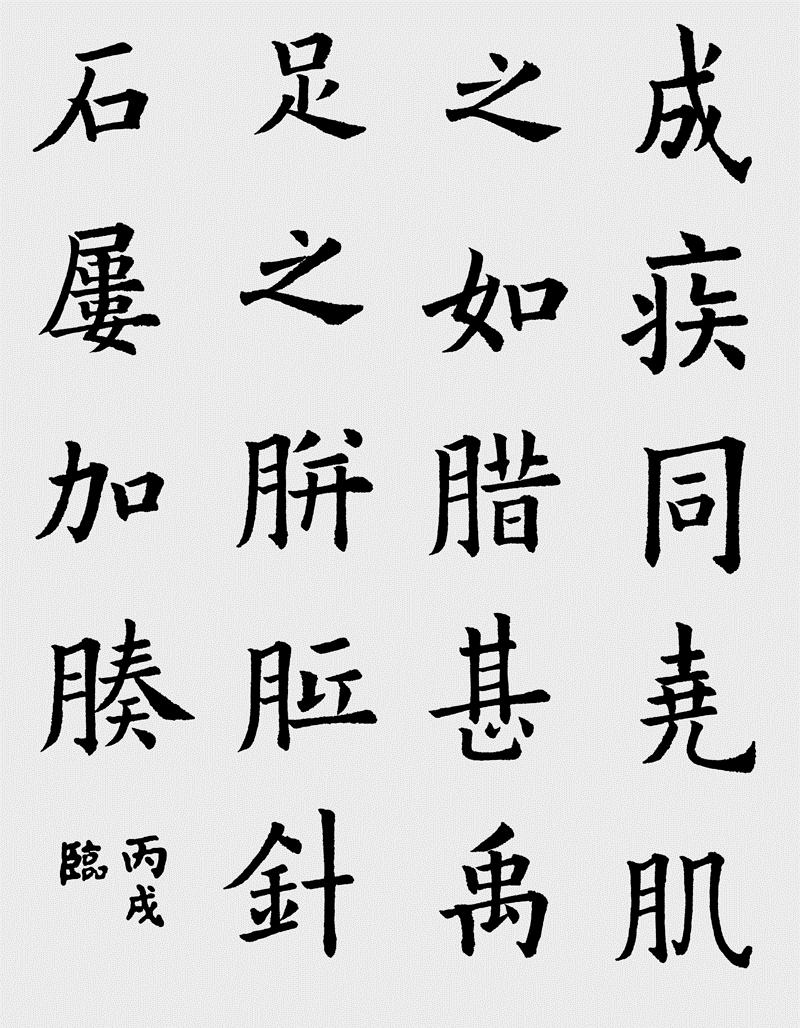 成疾同堯肌
之如腊甚禹
足之胼胝針
石屢加腠
丙戌
臨